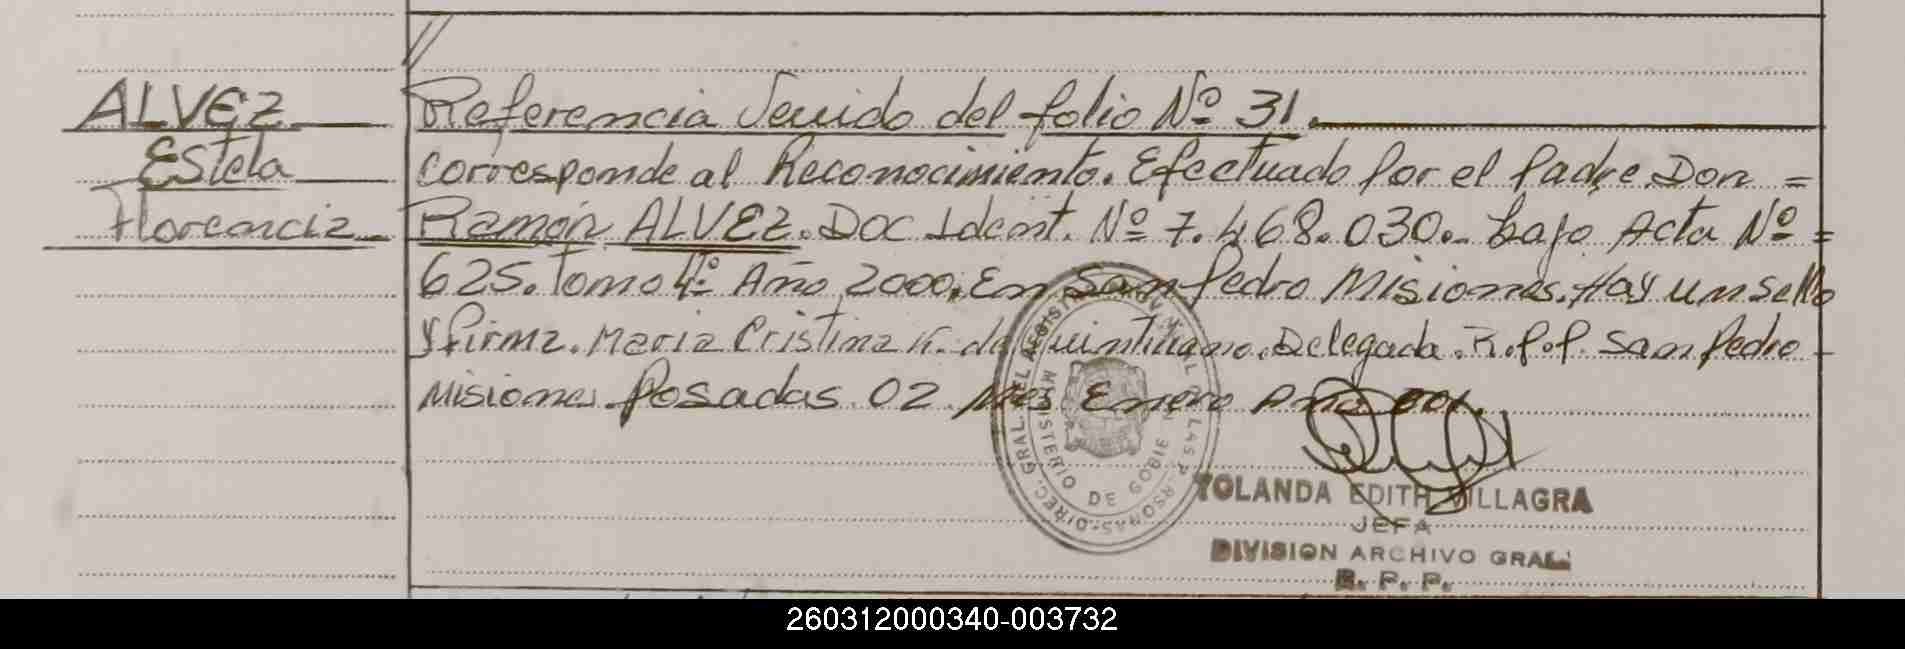 //
ALVEZ Referencia Venido del folio Nº 31.
Estela corresponde al Reconocimiento. Efectuado por el Padre Don =
Florencia Ramón ALVEZ. Doc Ident. Nº 7.468.030.- bajo Acta Nº =
625. Tomo 4º Año 2000. En San Pedro Misiones. Hay un sello
y firma. Maria Cristina K. de Quintiliano. Delegada. R.P.P. San Pedro -
Misiones Posadas 02 Mes Enero Año 001.
DIREC. GRAL. DEL REGISTRO DE LAS PERSONAS
MINISTERIO DE GOBIE
YOLANDA EDITH VILLAGRA
JEFA
DIVISION ARCHIVO GRAL.
R. P. P.
260312000340-003732